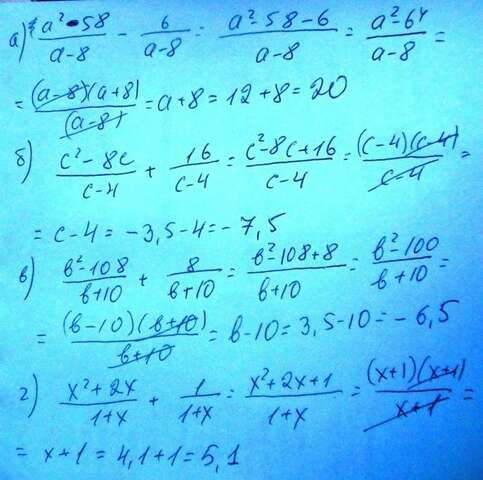 а) (a²-58)/(a-8) - 6/(a-8) = (a²-58-6)/(a-8) = (a²-64)/(a-8) =
= ((a-8)(a+8))/(a-8) = a+8 = 12+8 = 20
б) (c²-8c)/(c-4) + 16/(c-4) = (c²-8c+16)/(c-4) = ((c-4)(c-4))/(c-4) =
= c-4 = -3,5-4 = -7,5
в) (b²-108)/(b+10) + 8/(b+10) = (b²-108+8)/(b+10) = (b²-100)/(b+10) =
= ((b-10)(b+10))/(b+10) = b-10 = 3,5-10 = -6,5
г) (x²+2x)/(1+x) + 1/(1+x) = (x²+2x+1)/(1+x) = ((x+1)(x+1))/(x+1) =
= x+1 = 4,1+1 = 5,1